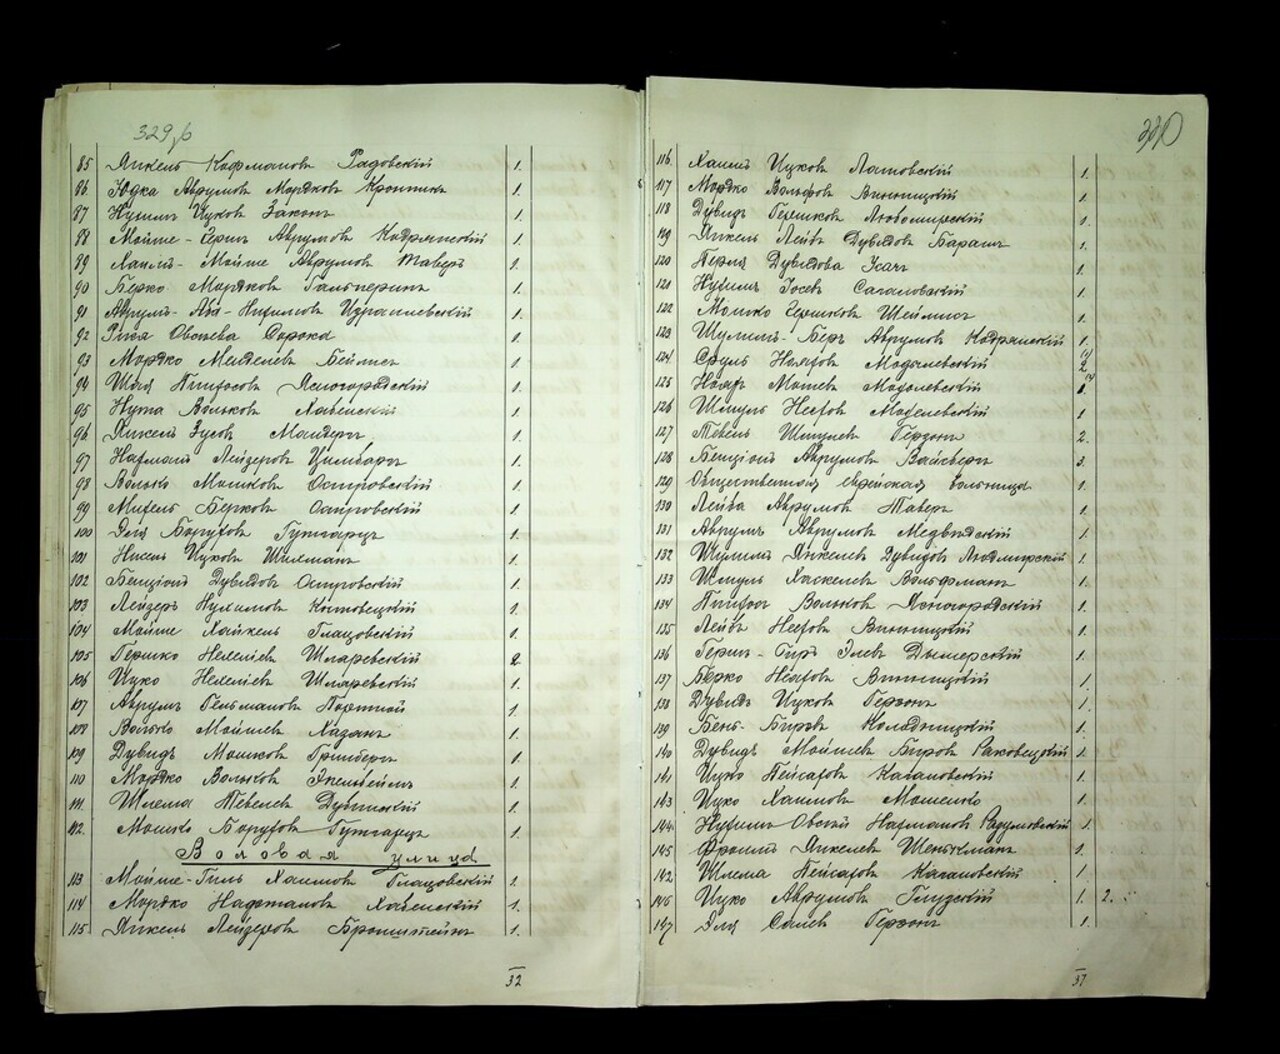 329 об
85 Янкель Кофмановъ Радовскій 1.
86 Юдка Аврумовъ Мордковъ Кройтикъ 1.
87 Нухимъ Ицковъ Законъ 1.
88 Мойше-Гершъ Аврумовъ Кодрянскій 1.
89 Хаимъ-Мойше Аврумовъ Таверъ 1.
90 Берко Мордковъ Гальперинъ 1.
91 Аврумъ-Аба-Нисимовъ Израилевскій 1.
92 Рися Овсеева Сорока 1.
93 Мордко Менделевъ Бейлисъ 1.
94 Шая Пинхосовъ Ясногородскій 1.
95 Нута Вольковъ Хабенскій 1.
96 Янкель Зусовъ Мандеръ 1.
97 Нахманъ Лейзеровъ Цимбаръ 1.
98 Волько Мошковъ Островскій 1.
99 Михель Берковъ Островскій 1.
100 Эля Боруховъ Гутгарцъ 1.
101 Нисель Ицковъ Шихманъ 1.
102 Бенціонъ Дувидовъ Островскій 1.
103 Лейзеръ Нухимовъ Котовецкій 1.
104 Мойше Хайкель Глацовскій 1.
105 Гершко Нехеміевъ Шпаревскій 2.
106 Ицко Нехеміевъ Шпаревскій 1.
107 Аврумъ Гельмановъ Портной 1.
108 Волько Мойшевъ Хазанъ 1.
109 Дувидъ Мошковъ Гринбергъ 1.
110 Мордко Вольковъ Экельгеймъ 1.
111. Шлема Тевелевъ Дубинскій 1.
112. Мошко Боруховъ Гутгарцъ 1.
Воловая улица
113 Мойше-Гиль Хаимовъ Глацовскій 1.
114 Мордко Нафтановъ Хабенскій 1.
115 Янкель Лейзеровъ Бронштейнъ 1.
32
330
116. Хаимъ Ицковъ Лотовскій 1.
117 Мордко Вольфовъ Винницкій 1.
118 Дувидъ Гершковъ Любомирскій 1.
119 Янкель Лейбъ Дувидовъ Барашъ 1.
120 Перля Дувидова Усачъ 1.
121 Нухимъ Іосевъ Сагаловскій 1.
122 Мошко Гершковъ Шеймисъ 1.
123 Шулимъ-Беръ Аврумовъ Кодрянскій 1.
124 Сруль Ноховъ Модылевскій 2
125 Нохъ Мошевъ Модолевскій
126 Шмуль Неховъ Моделевскій 1
127 Тевель Шмулевъ Герзонъ 2.
128 Бенціонъ Аврумовъ Вайсбергъ 3.
129 Общественная еврейская больница 1.
130 Лейба Аврумовъ Таверъ 1.
131 Аврумъ Аврумовъ Медвѣдскій 1.
132 Шулимъ Янкелевъ Дувидовъ Людмирскій 1.
133 Шмуль Хаскелевъ Вольфманъ 1.
134 Пинхосъ Вольковъ Ясногородскій 1.
135 Лейбъ Неховъ Винницкій 1.
136 Гершъ-Гиръ Элевъ Дымерскій 1.
137 Берко Неховъ Винницкій 1.
138 Дувидъ Ицковъ Герзонъ 1.
139 Бень-Бирова Колодницкій 1.
140 Дувидъ Мойшевъ Бировъ Раковецкій 1.
141 Ицко Пейсаховъ Кагановскій 1.
143 Ицко Хаимовъ Мошенко 1.
144. Нухимъ Овсѣй Нахмановъ Радумовскій 1.
145 Фроимъ Янкелевъ Шенькманъ 1.
142 Шлема Пейсаховъ Кагановскій 1
146 Ицко Аврумовъ Глузскій 1. 2.
147 Эля Самсовъ Герзонъ 1.
37